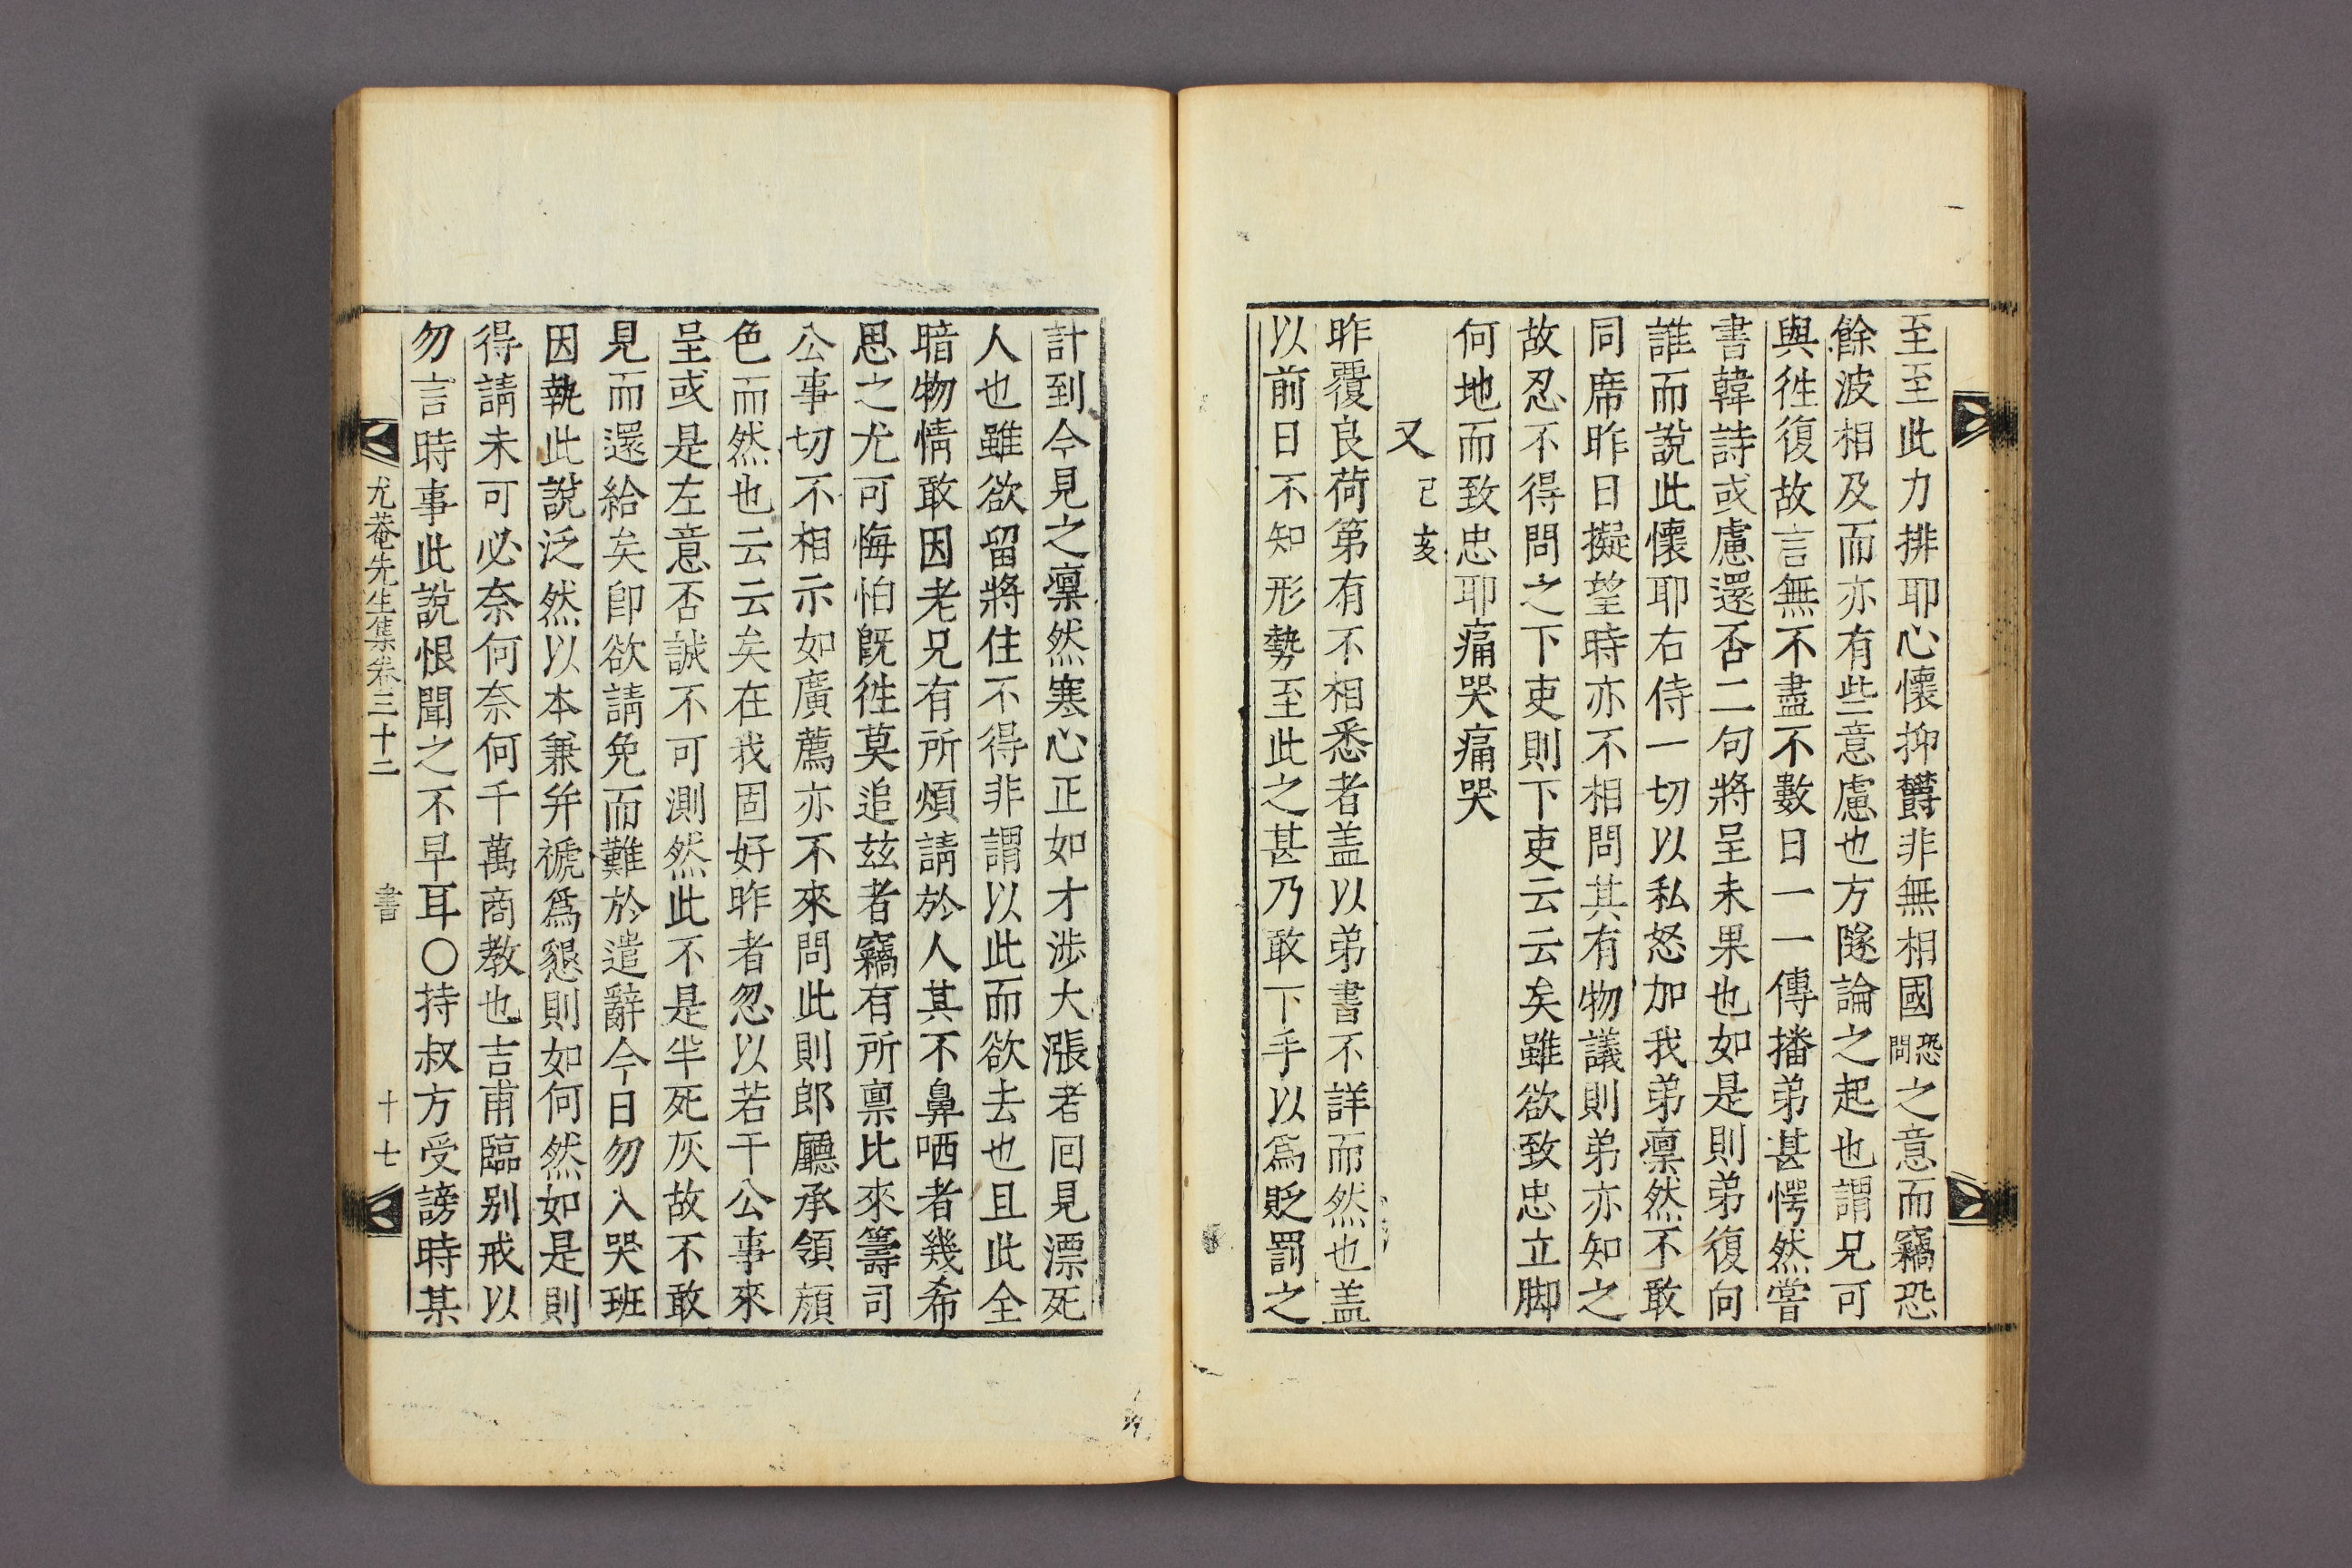 至至此力排耶心懷抑欝非無相國恐問之意而竊恐
餘波相及而亦有些意慮也方隧論之起也謂兄可
與徃復故言無不盡不數日一一傳播弟甚愕然嘗
書韓詩或慮還否二句將呈未果也如是則弟復向
誰而說此懷耶右侍一切以私怒加我弟凛然不敢
同席昨日擬望時亦不相問其有物議則弟亦知之
故忍不得問之下吏則下吏云云矣雖欲致忠立脚
何地而致忠耶痛哭痛哭
又己亥
昨覆良荷第有不相悉者盖以弟書不詳而然也盖
以前日不知形勢至此之甚乃敢下手以爲貶罰之
計到今見之凛然寒心正如才涉大漲者回見漂死
人也雖欲留將住不得非謂以此而欲去也且此全
暗物情敢因老兄有所煩請於人其不鼻哂者幾希
思之尤可悔怕旣徃莫追玆者竊有所禀比來籌司
公事切不相示如廣薦亦不來問此則郎廳承領顔
色而然也云云矣在我固好昨者忽以若干公事來
呈或是左意否誠不可測然此不是半死灰故不敢
見而還給矣卽欲請免而難於遣辭今日勿入哭班
因執此說泛然以本兼幷褫爲懇則如何然如是則
得請未可必奈何奈何千萬商教也吉甫臨别戒以
勿言時事此說恨聞之不早耳○持叔方受謗時某
尤菴先生集卷三十二 書 十七